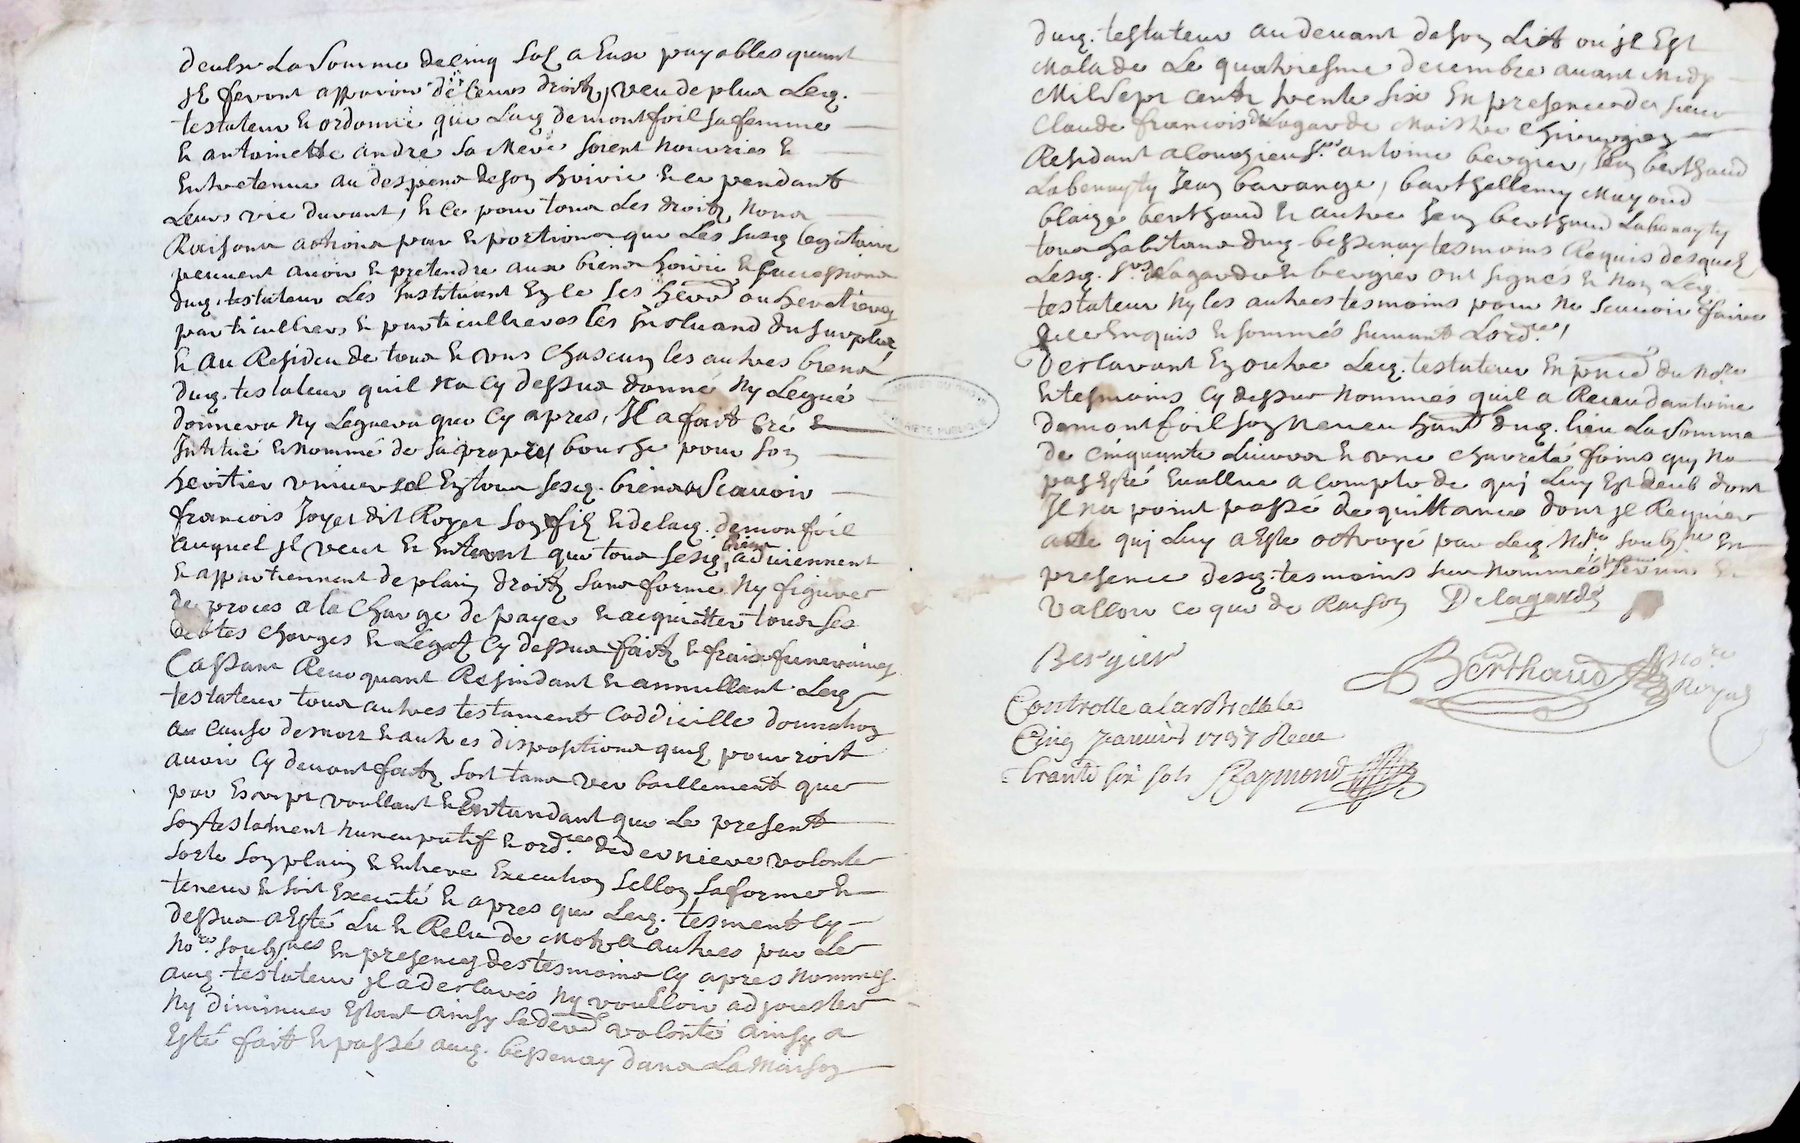 d'eulx La somme de cinq solz a Eux payables quant
Jl seront apparoir de leurs droitz, veu de plus Led.
testateur & ordonne que Lad. demontfoil sa femme
& antoinette andré sa Mere soient nourries &
Entretenue au despens de son hoirie & ce pendant
Leurs vie durant, & ce pour tous Les droitz, noms
Raisons actions pars & portions que Les susd. legataire
peuvent avoir & pretendre aux biens hoirie & successions
dud. testateur Les Instituant En ce ses hers ou heretieres
particulliers & particullieres les Excluand du surplus,
& au Residu de tous & uns chascun les autres biens
dud. testateur quil n'a cy dessus donné ny Legué
donnera ny Leguera que cy apres, Jl a fait cré &
Institué & nommé de sa propre bouche pour son
heritier universel En tous sesd. biens a Scavoir
francois Joyet dit Royet son filz & de lad. demonfoil
auquel Jl veut & Entent que tous sesd. biens adviennent
& appartiennent de plain droitz sans forme Ny figures
de proces a la charge de payer & acquitter tous ses
debtes charges & Legatz cy dessus faitz & fraix funeraires
Cassant Revoquant Resindant & annullant Led.
testateur tous autres testament coddicille donnation
a cause de mort & autres dispositions quil pourroit
avoir cy devant faitz soit tans verballement que
par Escript voullant & Entandant que Le present
son testament nuncupatif & ordce de derniere volonte
sorte son plain & Entiere Execution sellon sa forme &
teneur & soit Executé & apres que Led. tesment cy
dessus a Esté Lu & Relu de mot a autres par Le
Nore. soubznes En presences des tesmoins cy apres nommes
aud. testateur Jl a desclaré ny voulloir adjouster
Ny diminuer Estant ainsy sa dere volonté ainsy a
Esté fait & passé aud. bessenay dans La Maison
dud. testateur au devant de son Lit ou Jl Est
Malade Le quatriesme decembre avant Midy
Mil Sept cent trente six En presence de sieur
Claude francois de Lagarde Maistre Chirurgien
Residant a Courzieu Sr. antoine bergier, Jean berthaud
Labenayty Jean bavange, barthellemy Mayoud
blaize berthaud & autre Jean berthaud Labenayty
tous habitans dud. bessenay tesmoins Requis desquelz
Lesd. Srs delagarde & bergier ont signés & non Led.
testateur Ny les autres tesmoins pour ne Scavoir faire
de ce Enquis & sommés suivant Lordce,
Desclarant En outre Led. testateur En pnce du Nore
& tesmoins cy dessus nommes quil a Receu d'antoine
demontfoil son neveu hant dud. lieu La somme
de cinquante Livres & une charetée foins qui na
pas Esté Evallue a compte de qui Luy Est deub dont
Jl na point passé de quittance dont Jl Requier
acte qui Luy a Esté octroyé par Led. Nore soubzne En
presence desd. tesmoins sur nommes pour servir &
valloir ce que de Raison Delagarde
Bergier
Berthaud Nore
Royal
Controlle a larbresle le
Cinq Janvier 1737 Receu
trante six sols Raymond